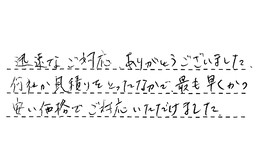 迅速なご対応ありがとうございました。
何社か見積りをとったなかで最も早くかつ
安い価格でご対応いただけました。